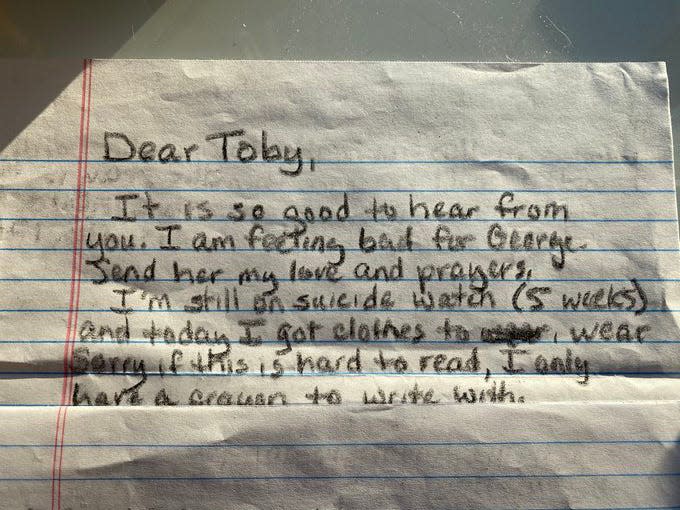 Dear Toby,
It is so good to hear from
you. I am feeling bad for George.
Send her my love and prayers.
I'm still on suicide watch (5 weeks)
and today I got clothes to wear
Sorry if this is hard to read, I only
have a crayon to write with.